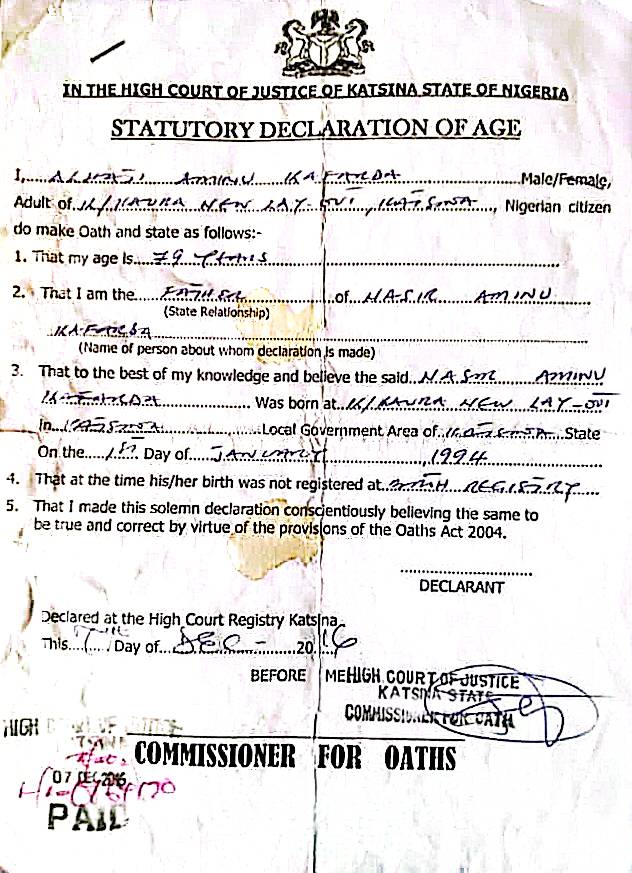 IN THE HIGH COURT OF JUSTICE OF KATSINA STATE OF NIGERIA
STATUTORY DECLARATION OF AGE
I, ALHAJI AMINU KAFARDA Male/Female,
Adult of K/KAURA NEW LAY-OUT, KATSINA, Nigerian citizen
do make Oath and state as follows:-
1. That my age is 79 YEARS
2. That I am the FATHER of NASIR AMINU
(State Relationship)
KAFARDA
(Name of person about whom declaration is made)
3. That to the best of my knowledge and believe the said NASIR AMINU
KAFARDA Was born at K/KAURA NEW LAY-OUT
In KATSINA Local Government Area of KATSINA State
On the 1ST Day of JANUARY, 1994
4. That at the time his/her birth was not registered at BIRTH REGISTRY
5. That I made this solemn declaration conscientiously believing the same to
be true and correct by virtue of the provisions of the Oaths Act 2004.
DECLARANT
Declared at the High Court Registry Katsina
This 7TH Day of DEC- 2016
BEFORE ME
HIGH COURT OF JUSTICE
KATSINA STATE
COMMISSIONER FOR OATH
HIGH
COMMISSIONER FOR OATHS
07 DEC 2016
PAID